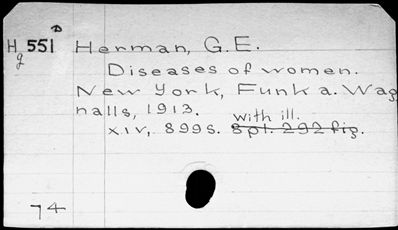 D
Hg 551 Herman, G.E.
Diseases of women.
New York, Funk a. Wag
nalls, 1913.
with ill.
xiv, 899s. 8 pl. 292 fig.
74